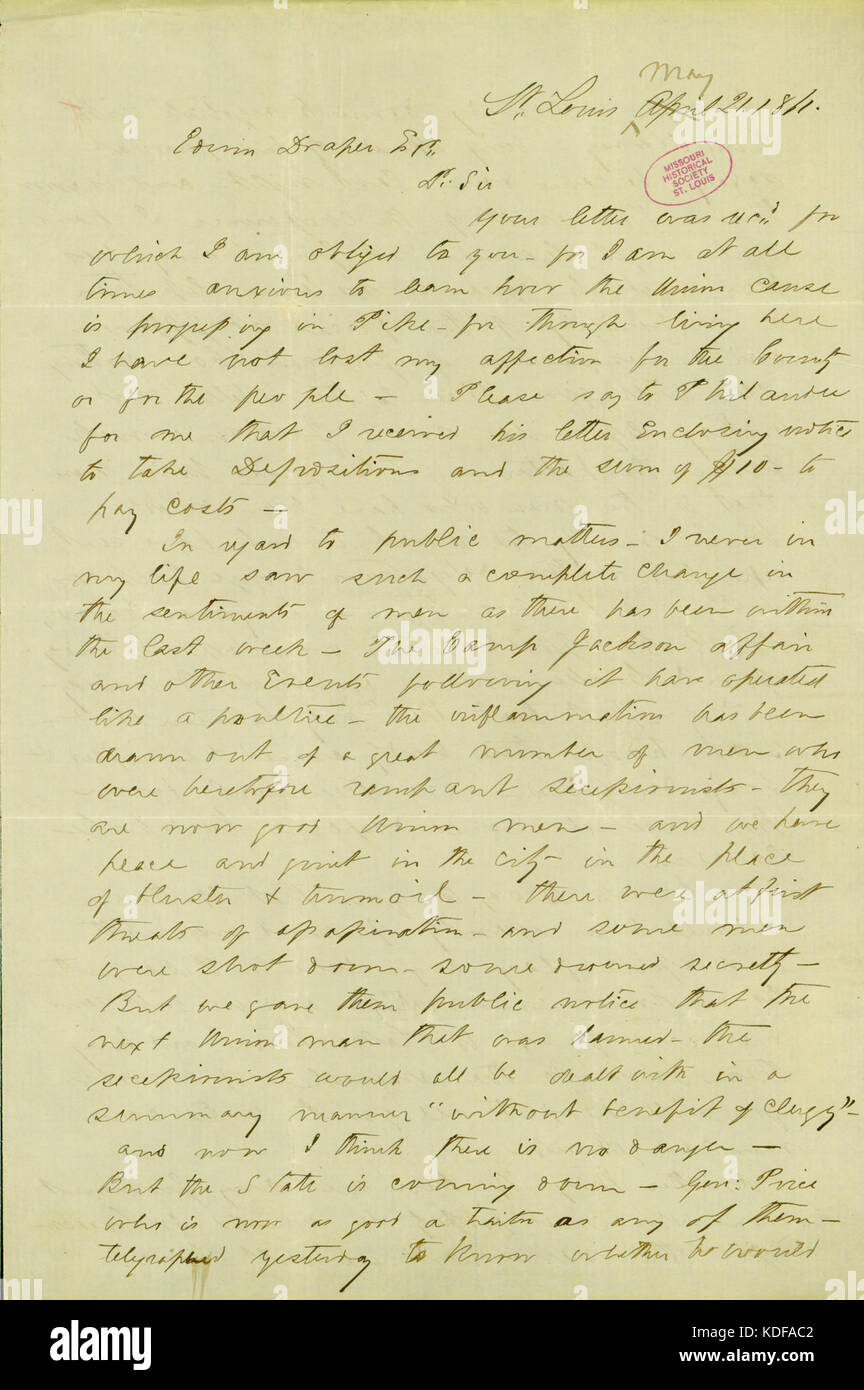 May
St. Louis April 21. 1861.
Edwin Draper Esqr.
Dr. Sir
MISSOURI
HISTORICAL
SOCIETY
ST. LOUIS
Your letter was recd for
which I am obliged to you - for I am at all
times anxious to learn how the Union cause
is progressing in Pike - for though living here
I have not lost my affection for the County
or for the people - Please say to Philander
for me that I received his letter Enclosing notice
to take Depositions and the sum of $10 - to
pay costs -
In regard to public matters - I never in
my life saw such a complete change in
the sentiments of men as there has been within
the last week - The Camp Jackson affair
and other Events following it have operated
like a poultice - the inflammation has been
drawn out of a great number of men who
were heretofore rampant secessionists - they
are now good Union men - and we have
peace and quiet in the city - in the place
of bluster & turmoil - there were at first
threats of assassination - and some men
were shot down - some drowned secretly -
But we gave them public notice that the
next Union man that was harmed - the
secessionists would all be dealt with in a
summary manner "without benefit of Clergy" -
and now I think there is no danger -
But the State is coming down - Gen: Price
who is now as good a traitor as any of them -
telegraphed yesterday to know whether he would
alamy
Image ID: KDFAC2
www.alamy.com